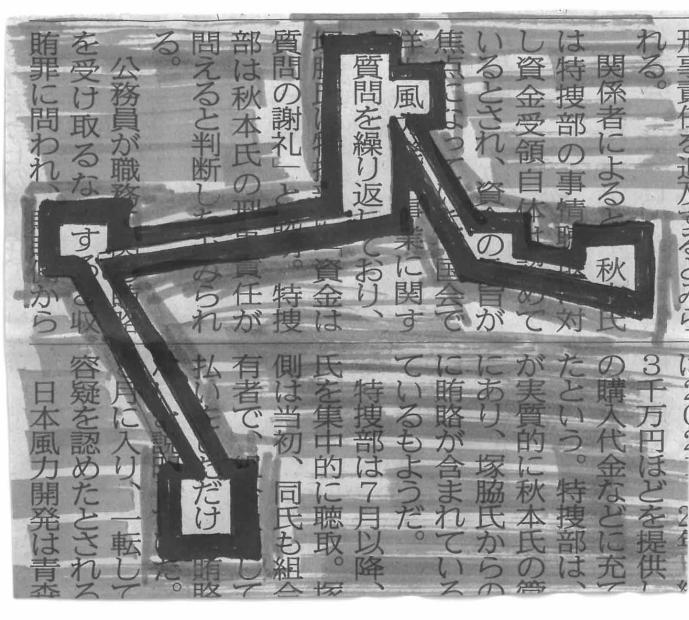 刑事責任を追及できるとみら
れる。
関係者によると 秋本氏
は特捜部の事情 対
し資金受領自体は認めて
いるとされ、資金の 旨が
焦点になって 国会で
洋 風 事業に関す
質問を繰り返しており、
資金は
質問の謝礼」と 特捜
部は秋本氏の刑事責任が
問えると判断したとみられ
る。
公務員が職務
を受け取るな する 収
賄罪に問われ、 から
3千万円ほどを提供し
の購入代金などに充て
たという。特捜部は、
が実質的に秋本氏の管
にあり、塚脇氏からの
に賄賂が含まれている
ているもようだ。
特捜部は7月以降、
氏を集中的に聴取。塚
側は当初、同氏も組合
有者で、 して
払い だけ 賄賂
た。
月に入り、一転して
容疑を認めたとされる
日本風力開発は青森